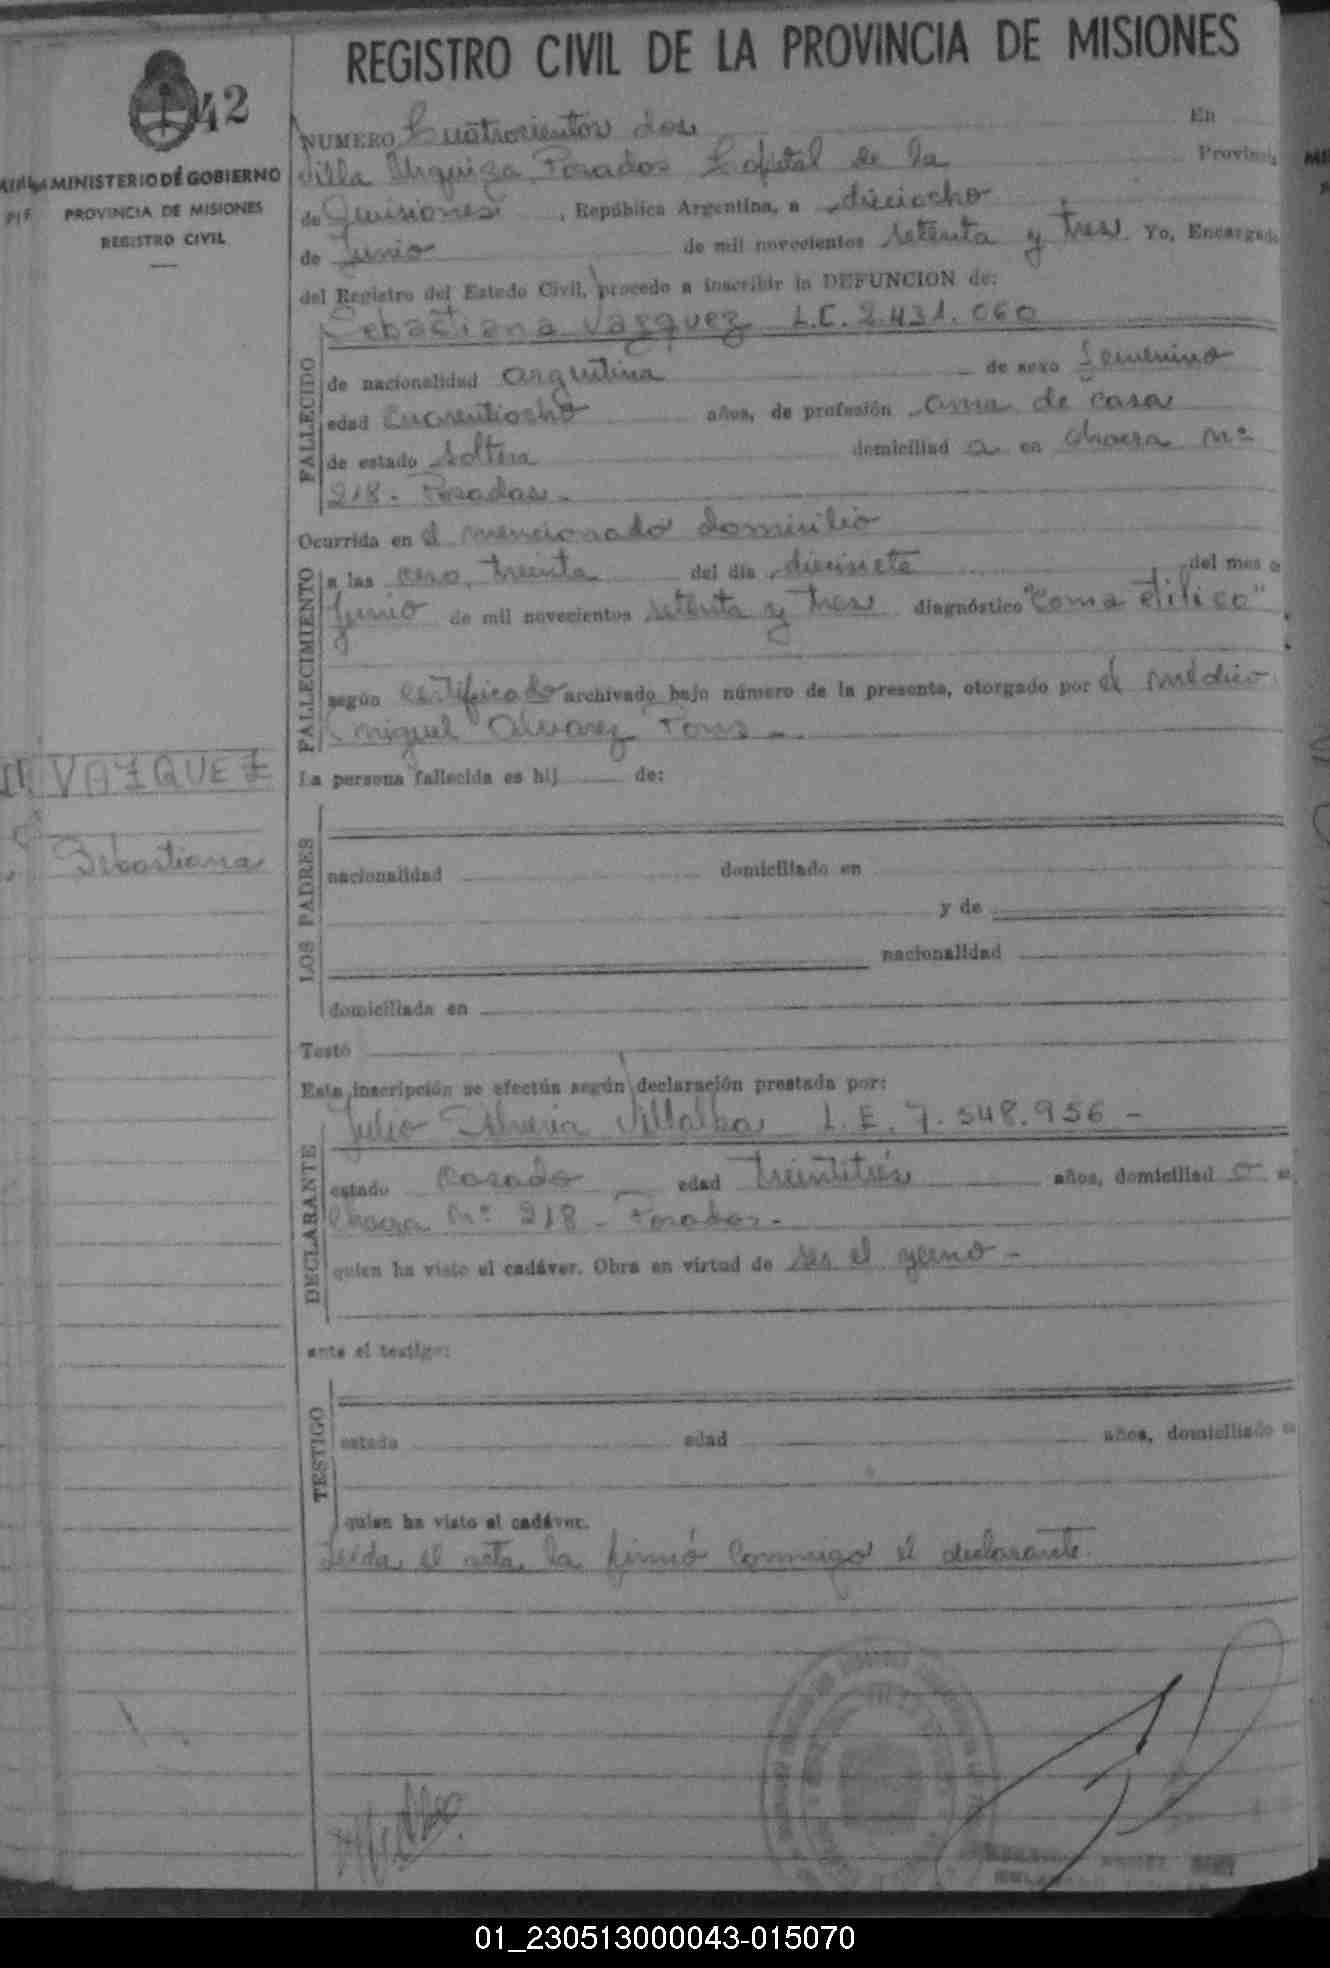 REGISTRO CIVIL DE LA PROVINCIA DE MISIONES
42
MINISTERIO DE GOBIERNO
PROVINCIA DE MISIONES
REGISTRO CIVIL
NUMERO Cuatrocientos dos En
Villa Urquiza Posadas Capital de la Provincia
de Misiones, República Argentina, a dieciocho
de Junio de mil novecientos setenta y tres. Yo, Encargado
del Registro del Estado Civil, procedo a inscribir la DEFUNCION de:
Sebastiana Vazquez L.C. 2.431.060
FALLECIDO
de nacionalidad argentina de sexo femenino
edad cuarentiocho años, de profesión ama de casa
de estado soltera domiciliad a en chacra Nº
218 - Posadas -
Ocurrida en el mencionado domicilio
FALLECIMIENTO
a las cero, treinta del día diecisiete del mes
Junio de mil novecientos setenta y tres diagnóstico "Coma etílico"
según certificado archivado bajo número de la presente, otorgado por el médico
Miguel Alvarez
La persona fallecida es hij de:
VAZQUEZ
Sebastiana
LOS PADRES
nacionalidad domiciliado en
y de
nacionalidad
domiciliada en
Testó
Esta inscripción se efectúa según declaración prestada por:
Julio Villalba L.E. 7.548.956 -
DECLARANTE
estado casado edad treintitrés años, domiciliad o e
Chacra Nº 218 - Posadas -
quien ha visto el cadáver. Obra en virtud de ser el yerno -
ante el testigo:
TESTIGO
estado edad años, domiciliado e
quien ha visto el cadáver.
Leída el acta, la firmó conmigo el declarante.
01_230513000043-015070